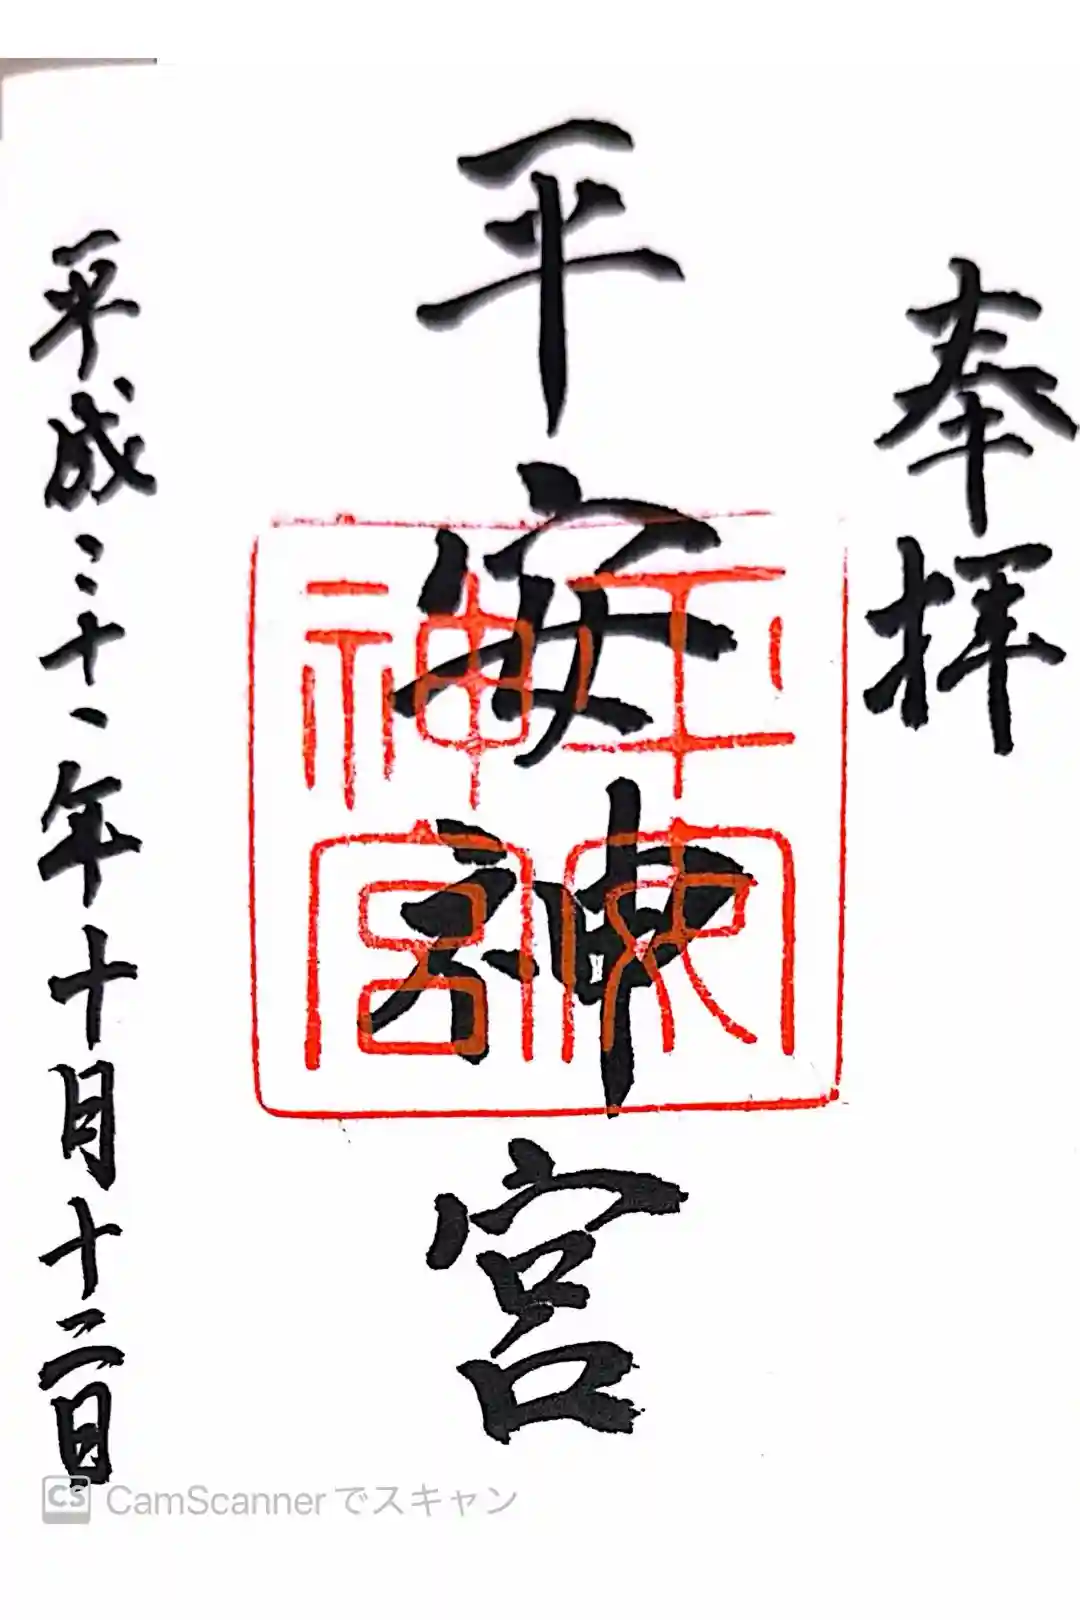 奉拝
平安神宮
平安
神宮
平成三十一年十月十二日
CS CamScannerでスキャン